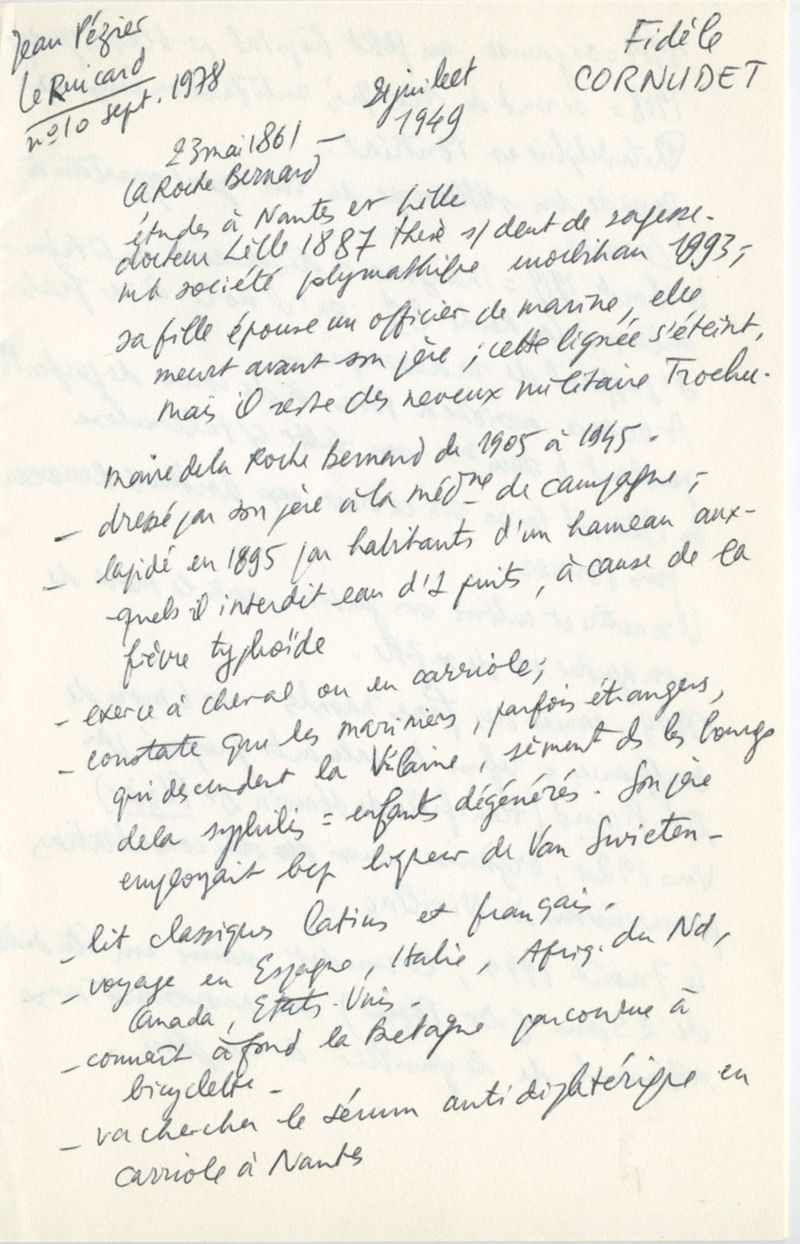 Jean Pézier
Le Ruicard
nº10 sept. 1978
Fidèle
CORNUDET
23 mai 1861 – 21 juillet
1949
La Roche Bernard
études à Nantes et Lille
docteur Lille 1887 thèse s/ dent de sagesse.
mb société polymathique morbihan 1993,
sa fille épouse un officier de marine, elle
meurt avant son père ; cette lignée s'éteint,
mais il reste des neveux militaire Trochu.
maire de la Roche Bernard de 1905 à 1945.
– dressé par son père à la médne de campagne ;
– lapidé en 1895 par habitants d'un hameau aux-
quels il interdit eau d'1 puits, à cause de la
fièvre typhoïde
– exerce à cheval ou en carriole ;
– constate que les mariniers, parfois étrangers,
qui descendent la Vilaine, sèment ds les bourgs
de la syphilis = enfants dégénérés. Son père
employait bcp liqueur de Van Swieten –
– lit classiques latins et français.
– voyage en Espagne, Italie, Afriq. du Nd,
Canada, Etats-Unis.
– connaît à fond la Bretagne parcourue à
bicyclette –
– va chercher le sérum antidiphtérique en
carriole à Nantes